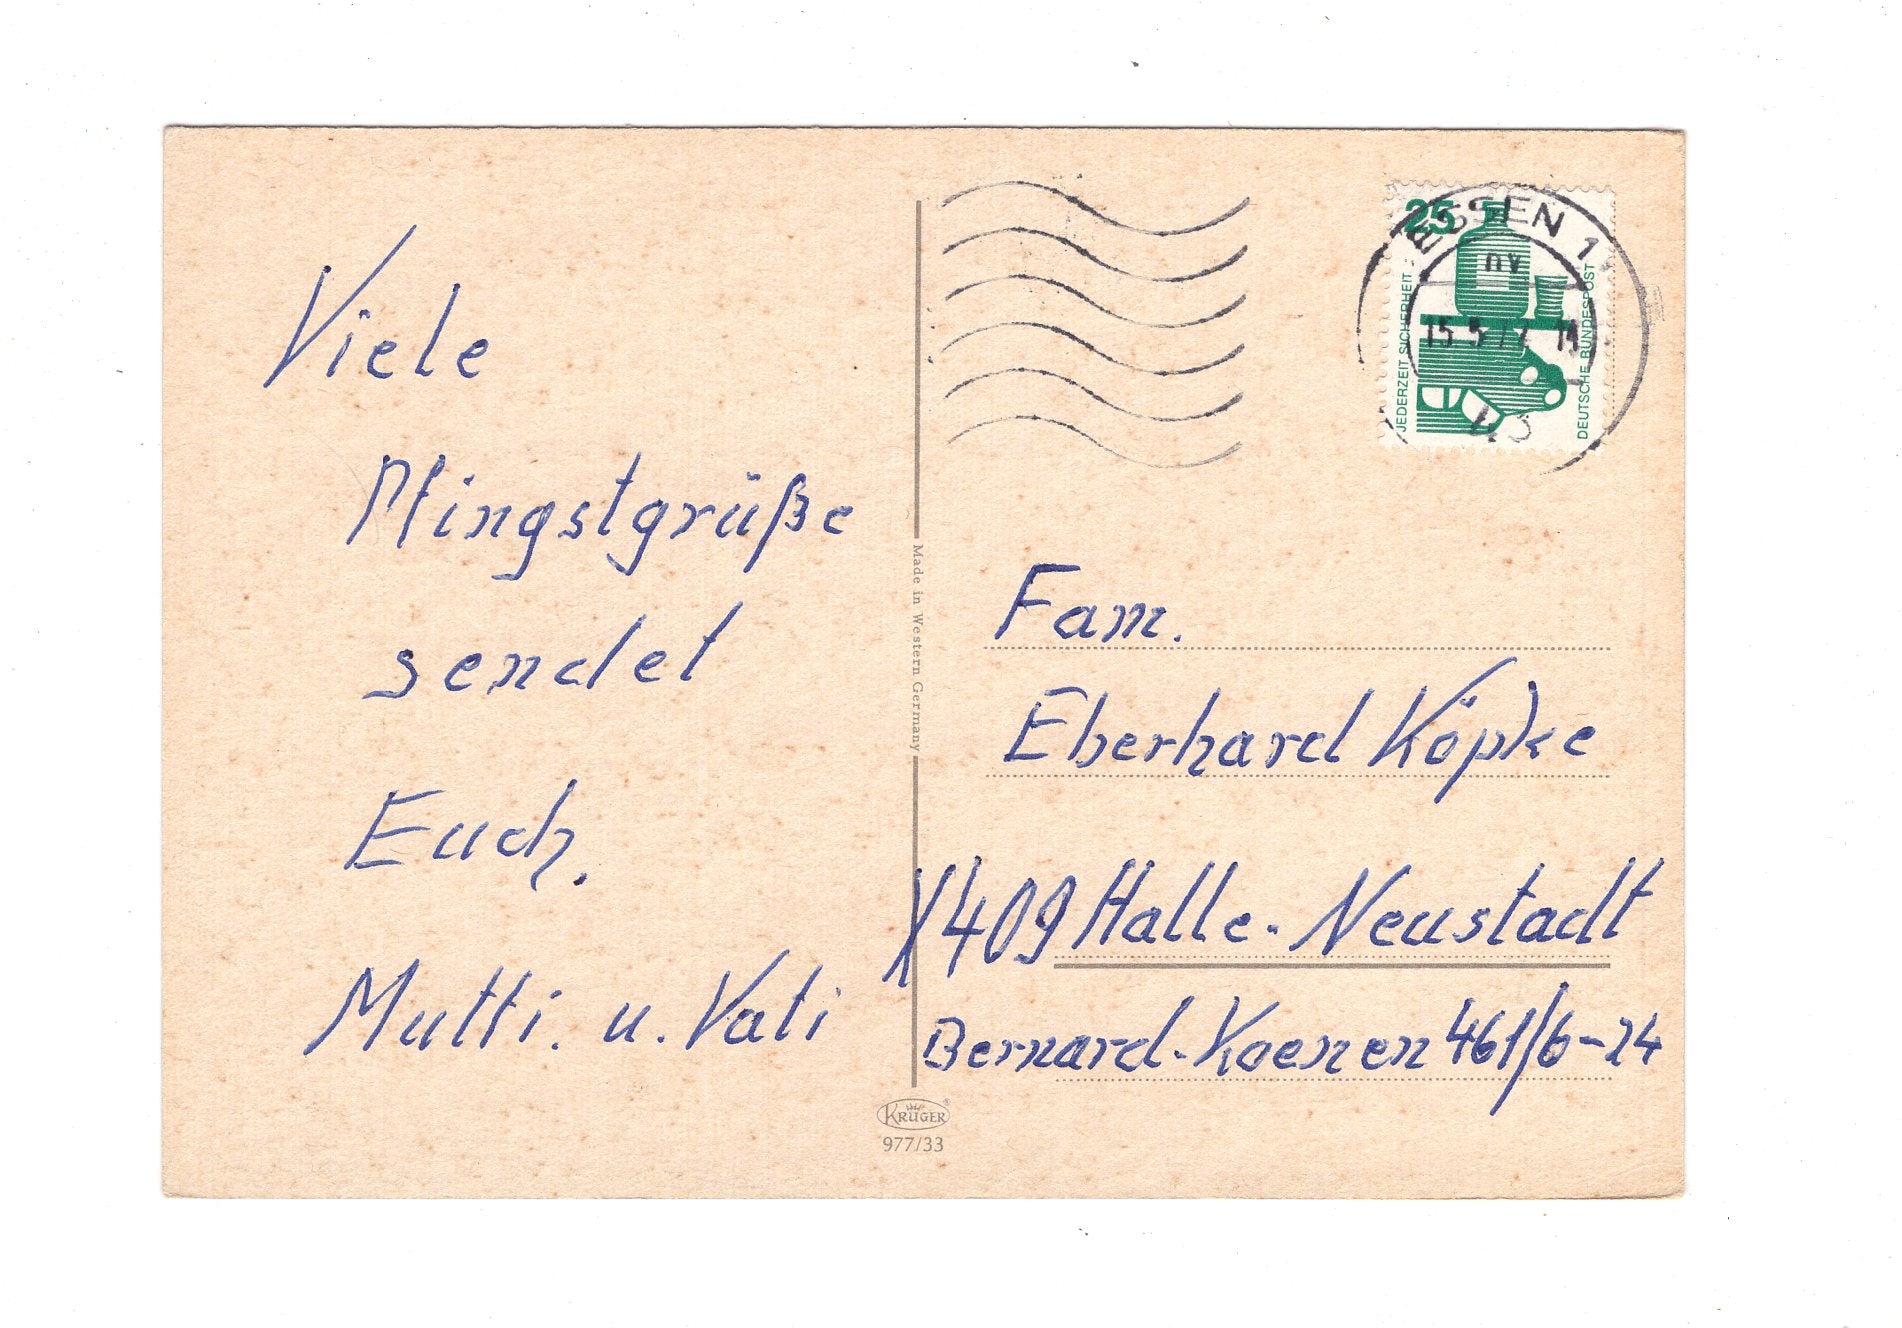 Viele
Pfingstgrüße
sendet
Euch.
Mutti. u. Vati
Made in Western Germany
KRÜGER
977/33
25
ESSEN 1
JEDERZEIT SICHERHEIT
DEUTSCHE BUNDESPOST
nv
15.5.72
Fam.
Eberhard Köpke
X409 Halle-Neustadt
Bernard-Koenen 461/6-24